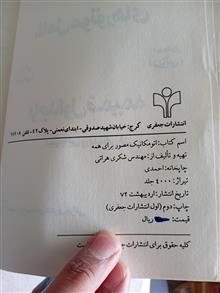 انتشارات جعفری کرج: خیابان شهید صدوقی - ابتدای نعمتی - پلاک ۴۲ - تلفن
اسم کتاب: اتومکانیک مصور برای همه
تهیه و تألیف از: مهندس شکری هراتی
چاپخانه: احمدی
تیراژ: ۴۰۰۰ جلد
تاریخ انتشار: اردیبهشت ۷۲
چاپ: دوم (اول انتشارات جعفری)
قیمت: ریال
کلیه حقوق برای انتشارات